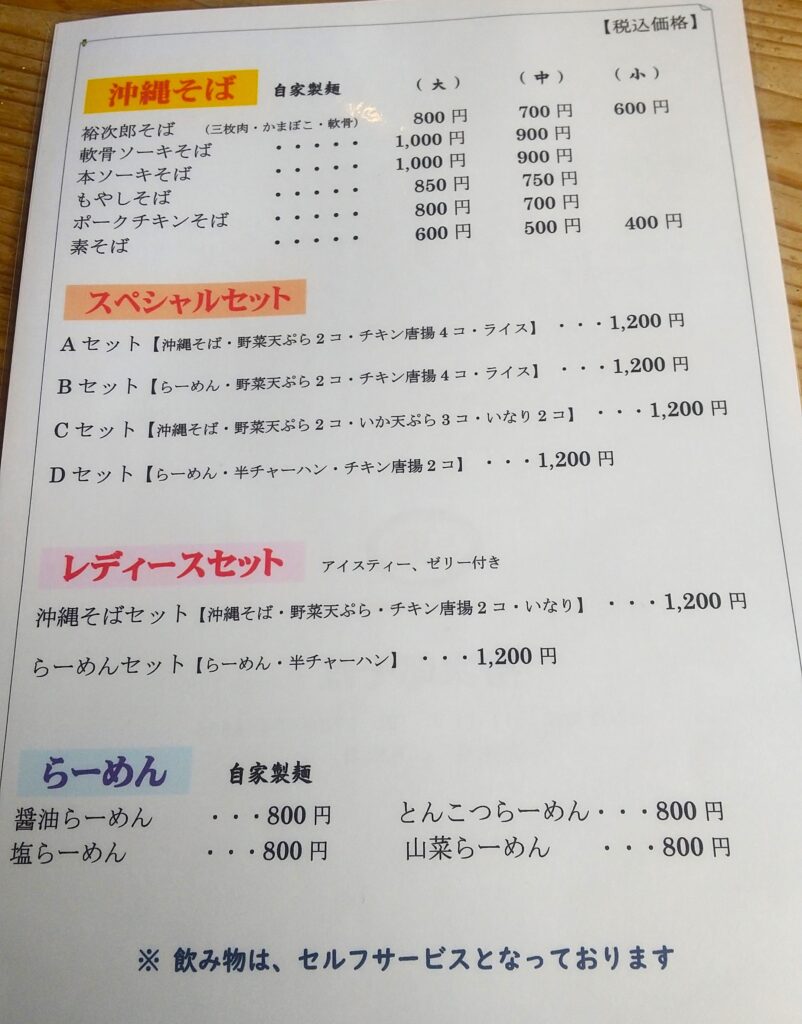 【税込価格】
沖縄そば 自家製麺 (大) (中) (小)
裕次郎そば (三枚肉・かまぼこ・軟骨) 800円 700円 600円
軟骨ソーキそば ・・・・・ 1,000円 900円
本ソーキそば ・・・・・ 1,000円 900円
もやしそば ・・・・・ 850円 750円
ポークチキンそば ・・・・・ 800円 700円
素そば ・・・・・ 600円 500円 400円
スペシャルセット
Aセット【沖縄そば・野菜天ぷら2コ・チキン唐揚4コ・ライス】 ・・・1,200円
Bセット【らーめん・野菜天ぷら2コ・チキン唐揚4コ・ライス】 ・・・1,200円
Cセット【沖縄そば・野菜天ぷら2コ・いか天ぷら3コ・いなり2コ】 ・・・1,200円
Dセット【らーめん・半チャーハン・チキン唐揚2コ】 ・・・1,200円
レディースセット アイスティー、ゼリー付き
沖縄そばセット【沖縄そば・野菜天ぷら・チキン唐揚2コ・いなり】 ・・・1,200円
らーめんセット【らーめん・半チャーハン】 ・・・1,200円
らーめん 自家製麺
醤油らーめん ・・・800円 とんこつらーめん・・・800円
塩らーめん ・・・800円 山菜らーめん ・・・800円
※ 飲み物は、セルフサービスとなっております